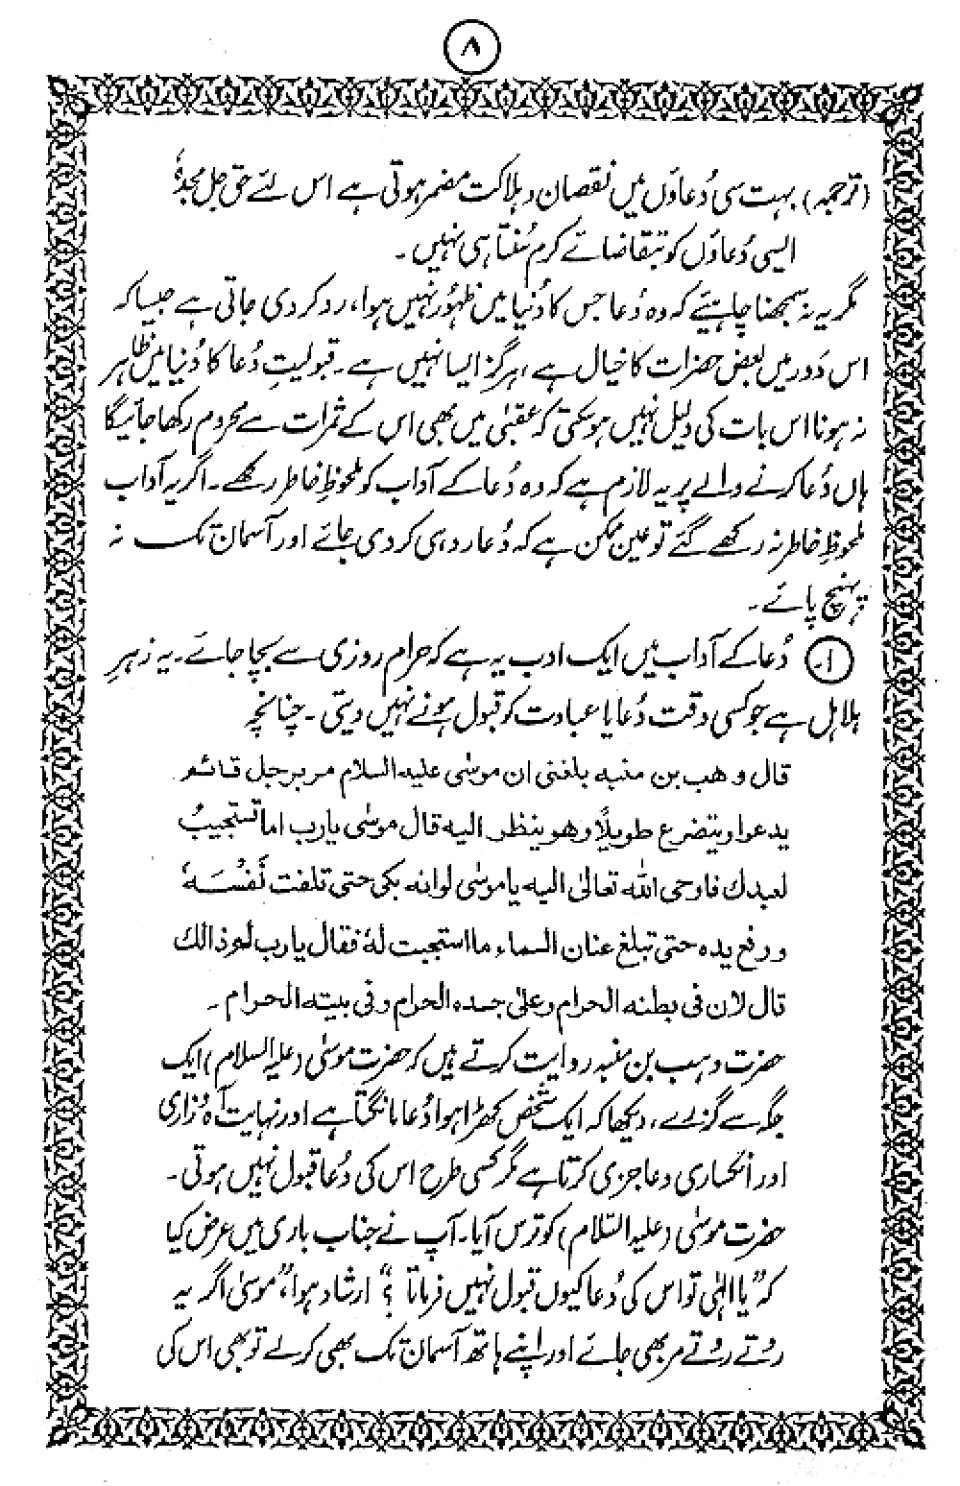 ۸
(ترجمہ) بہت سی دُعاؤں میں نقصان و ہلاکت مضمر ہوتی ہے اس لئے حق جل مجدہٗ
ایسی دُعاؤں کو بتقاضائے کرم سُنتا ہی نہیں ۔
مگر یہ نہ سمجھنا چاہیئے کہ وہ دُعا جس کا دُنیا میں ظہُور نہیں ہوا، رد کر دی جاتی ہے جیسا کہ
اس دَور میں بعض حضرات کا خیال ہے، ہرگز ایسا نہیں ہے ۔ قبولیتِ دُعا کا دُنیا میں ظاہر
نہ ہونا اس بات کی دلیل نہیں ہو سکتی کہ عقبٰی میں بھی اس کے ثمرات سے محروم رکھا جائیگا
ہاں دُعا کرنے والے پر یہ لازم ہے کہ وہ دُعا کے آداب کو ملحوظِ خاطر رکھے ۔ اگر یہ آداب
ملحوظِ خاطر نہ رکھے گئے تو عین ممکن ہے کہ دُعا رد ہی کر دی جائے اور آسمان تک نہ
پہنچ پائے ۔
۱۔ دُعا کے آداب میں ایک ادب یہ ہے کہ حرام روزی سے بچا جائے ۔ یہ زہرِ
ہلاہل ہے جو کسی وقت دُعا یا عبادت کو قبول ہونے نہیں دیتی ۔ چنانچہ
قال وهب بن منبه بلغنی ان موسٰی علیه السلام مر برجل قائم
یدعوا ویتضرع طویلاً وهو ینظر الیه قال موسٰی یارب اما تستجیبُ
لعبدك فاوحی اللّٰه تعالیٰ الیه یا موسٰی لوانه بکی حتی تلفت نَفْسَهٗ
ورفع یده حتی تبلغ عنان السماء ما استجبت لهٗ فقال یارب لم ذالك
قال لان فی بطنه الحرام وعلیٰ جسده الحرام وفی بیته الحرام ۔
حضرت وہب بن منبہ روایت کرتے ہیں کہ حضرت موسٰی (علیہ السلام) ایک
جگہ سے گزرے، دیکھا کہ ایک شخص کھڑا ہوا دُعا مانگتا ہے اور نہایت آہ و زاری
اور انکساری و عاجزی کرتا ہے مگر کسی طرح اس کی دُعا قبول نہیں ہوتی ۔
حضرت موسٰی (علیہ السّلام) کو ترس آیا ۔ آپ نے جناب باری میں عرض کیا
کہ ”یا الٰہی تو اس کی دُعا کیوں قبول نہیں فرماتا ؟“ ارشاد ہوا، ”موسٰی اگر یہ
روتے روتے مر بھی جائے اور اپنے ہاتھ آسمان تک بھی کر لے تو بھی اس کی